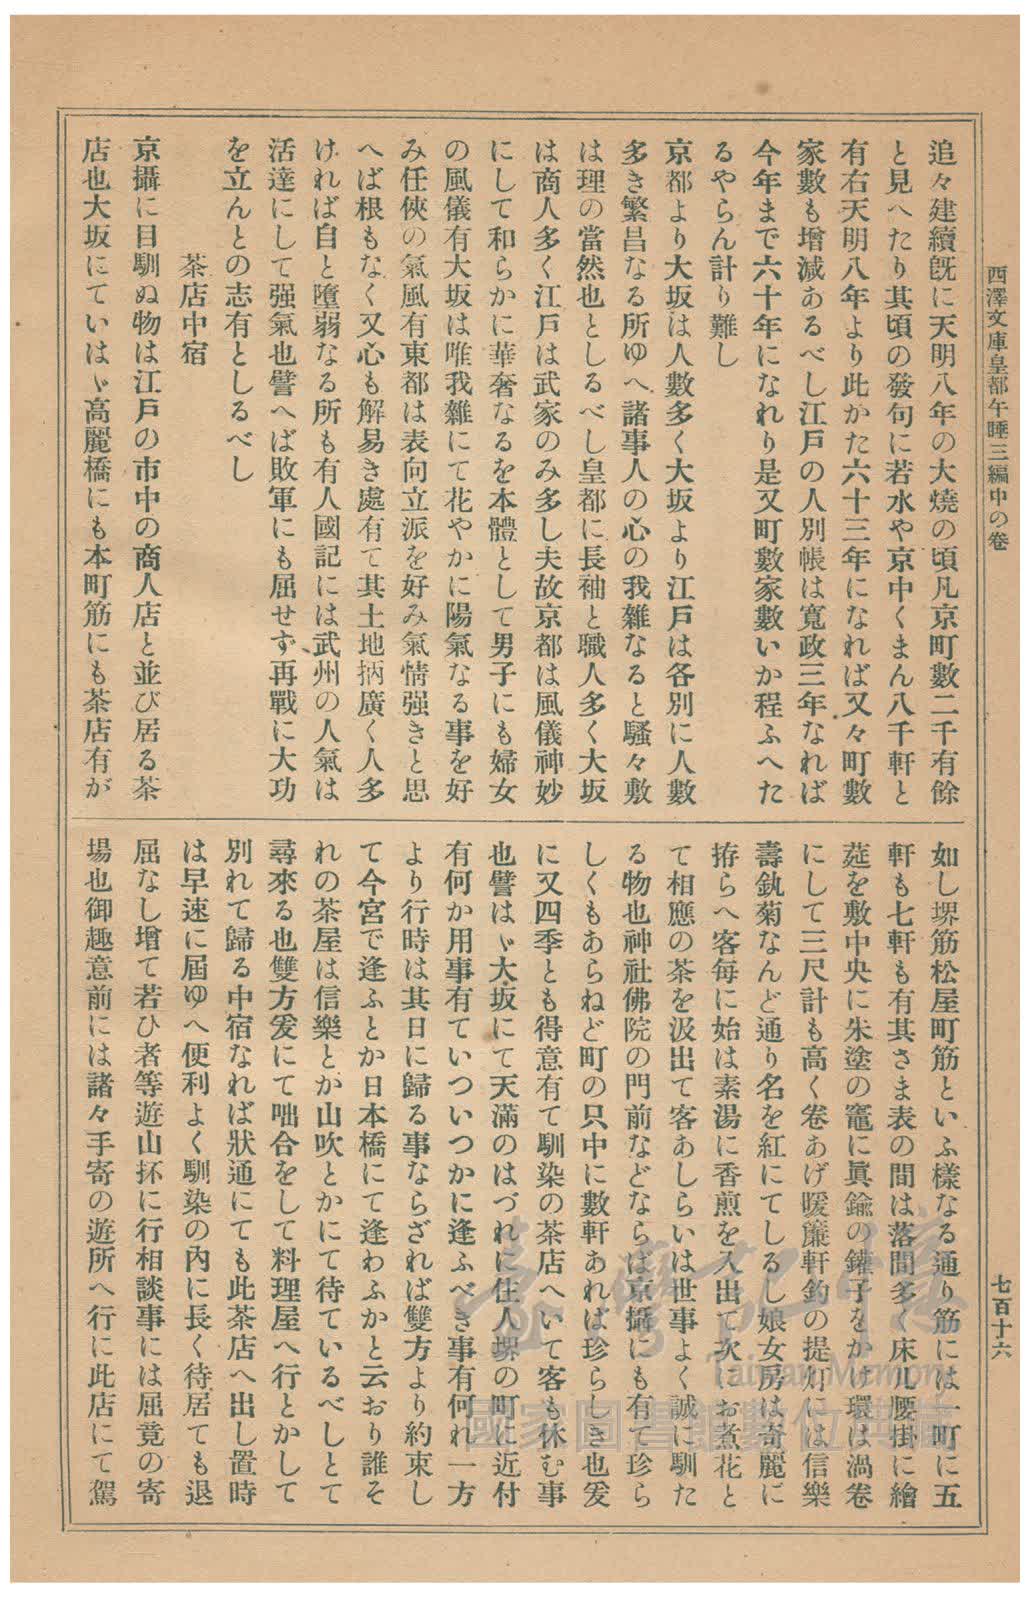 西澤文庫皇都午睡三編中の卷
七百十六
追々建續既に天明八年の大燒の頃凡京町數二千有餘
と見へたり其頃の發句に若水や京中くまん八千軒と
有右天明八年より此かた六十三年になれば又々町數
家數も增減あるべし江戸の人別帳は寬政三年なれば
今年まで六十年になれり是又町數家數いか程ふへた
るやらん計り難し
京都より大坂は人數多く大坂より江戸は各別に人數
多き繁昌なる所ゆへ諸事人の心の我雜なると騷々敷
は理の當然也としるべし皇都に長袖と職人多く大坂
は商人多く江戸は武家のみ多し夫故京都は風儀神妙
にして和らかに華奢なるを本體として男子にも婦女
の風儀有大坂は唯我雜にて花やかに陽氣なる事を好
み任俠の氣風有東都は表向立派を好み氣情强きと思
へば根もなく又心も解易き處有て其土地柄廣く人多
ければ自と墮弱なる所も有人國記には武州の人氣は
活達にして强氣也譬へば敗軍にも屈せず再戰に大功
を立んとの志有としるべし
茶店中宿
京攝に目馴ぬ物は江戸の市中の商人店と並び居る茶
店也大坂にていはゞ高麗橋にも本町筋にも茶店有が
如し堺筋松屋町筋といふ樣なる通り筋には一町に五
軒も七軒も有其さま表の間は落間多く床几腰掛に繪
莚を敷中央に朱塗の竈に眞鍮の鑵子をかけ環は渦卷
にして三尺計も高く卷あげ暖簾軒釣の提灯には信樂
壽釻菊なんど通り名を紅にてしるし娘女房は奇麗に
拵らへ客每に始は素湯に香煎を入出て次にお煮花と
て相應の茶を汲出て客あしらいは世事よく誠に馴た
る物也神社佛院の門前などならば京攝にも有て珍ら
しくもあらねど町の只中に數軒あれは珍らしき也爰
に又四季とも得意有て馴染の茶店へいて客も休む事
也譬はゞ大坂にて天滿のはづれに住人堺の町に近付
有何か用事有ていついつかに逢ふべき事有何れ一方
より行時は其日に歸る事ならざれば雙方より約束し
て今宮で逢ふとか日本橋にて逢わふかと云おり誰そ
れの茶屋は信樂とか山吹とかにて待ているべしとて
尋來る也雙方爰にて咄合をして料理屋へ行とかして
別れて歸る中宿なれば狀通にても此茶店へ出し置時
は早速に屆ゆへ便利よく馴染の內に長く待居ても退
屈なし增て若ひ者等遊山抔に行相談事には屈竟の寄
場也御趣意前には諸々手寄の遊所へ行に此店にて駕
臺灣記憶
Taiwan Memory
國家圖書館數位典藏